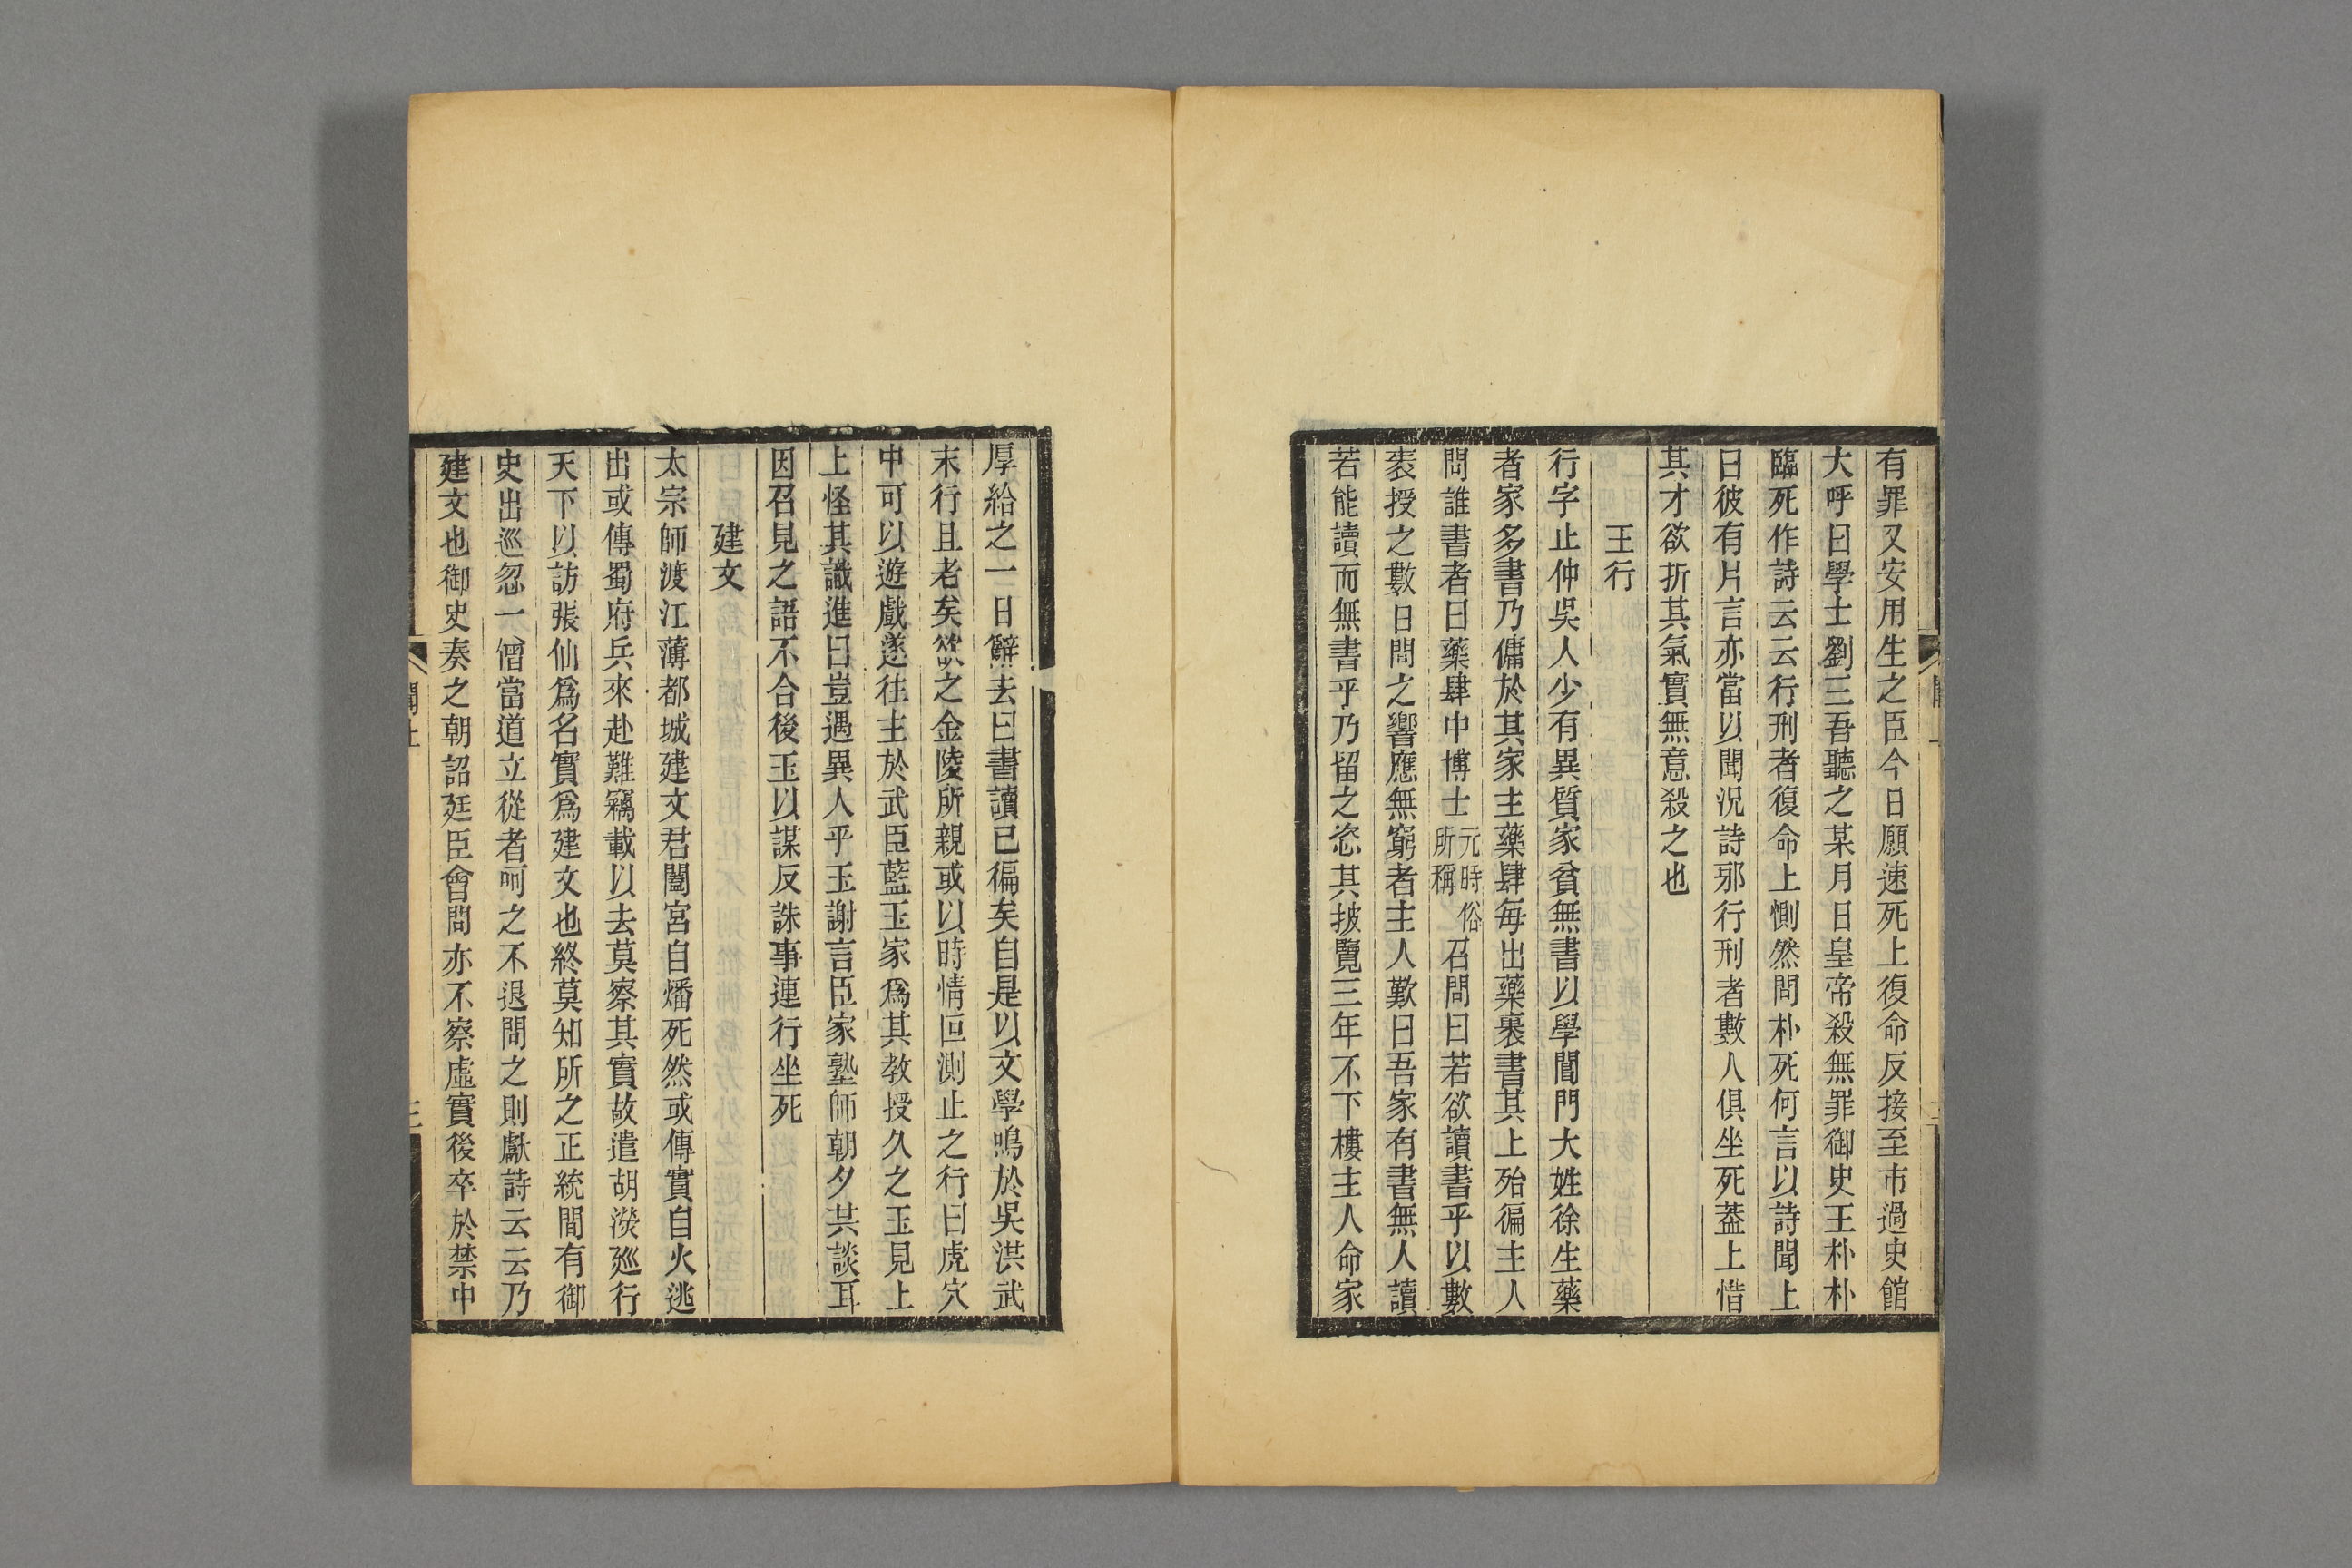 有罪又安用生之臣今日願速死上復命反接至市過史館
大呼曰學士劉三吾聽之某月日皇帝殺無罪御史王朴朴
臨死作詩云云行刑者復命上惻然問朴死何言以詩聞上
曰彼有片言亦當以聞況詩邪行刑者數人俱坐死葢上惜
其才欲折其氣實無意殺之也
王行
行字止仲吳人少有異質家貧無書以學閶門大姓徐生藥
者家多書乃傭於其家主藥肆每出藥裹書其上殆徧主人
問誰書者曰藥肆中博士元時俗所稱召問曰若欲讀書乎以數
袠授之數日問之響應無窮者主人歎曰吾家有書無人讀
若能讀而無書乎乃留之恣其披覽三年不下樓主人命家
厚給之一日辭去曰書讀已徧矣自是以文學鳴於吳洪武
末行且耄矣欲之金陵所親或以時情叵測止之行曰虎穴
中可以遊戲遂往主於武臣藍玉家爲其教授久之玉見上
上怪其識進曰豈遇異人乎玉謝言臣家塾師朝夕共談耳
因召見之語不合後玉以謀反誅事連行坐死
建文
太宗師渡江薄都城建文君闔宮自燔死然或傳實自火逃
出或傳蜀府兵來赴難竊載以去莫察其實故遣胡濙廵行
天下以訪張仙爲名實爲建文也終莫知所之正統間有御
史出巡忽一僧當道立從者呵之不退問之則獻詩云云乃
建文也御史奏之朝詔廷臣會問亦不察虛實後卒於禁中